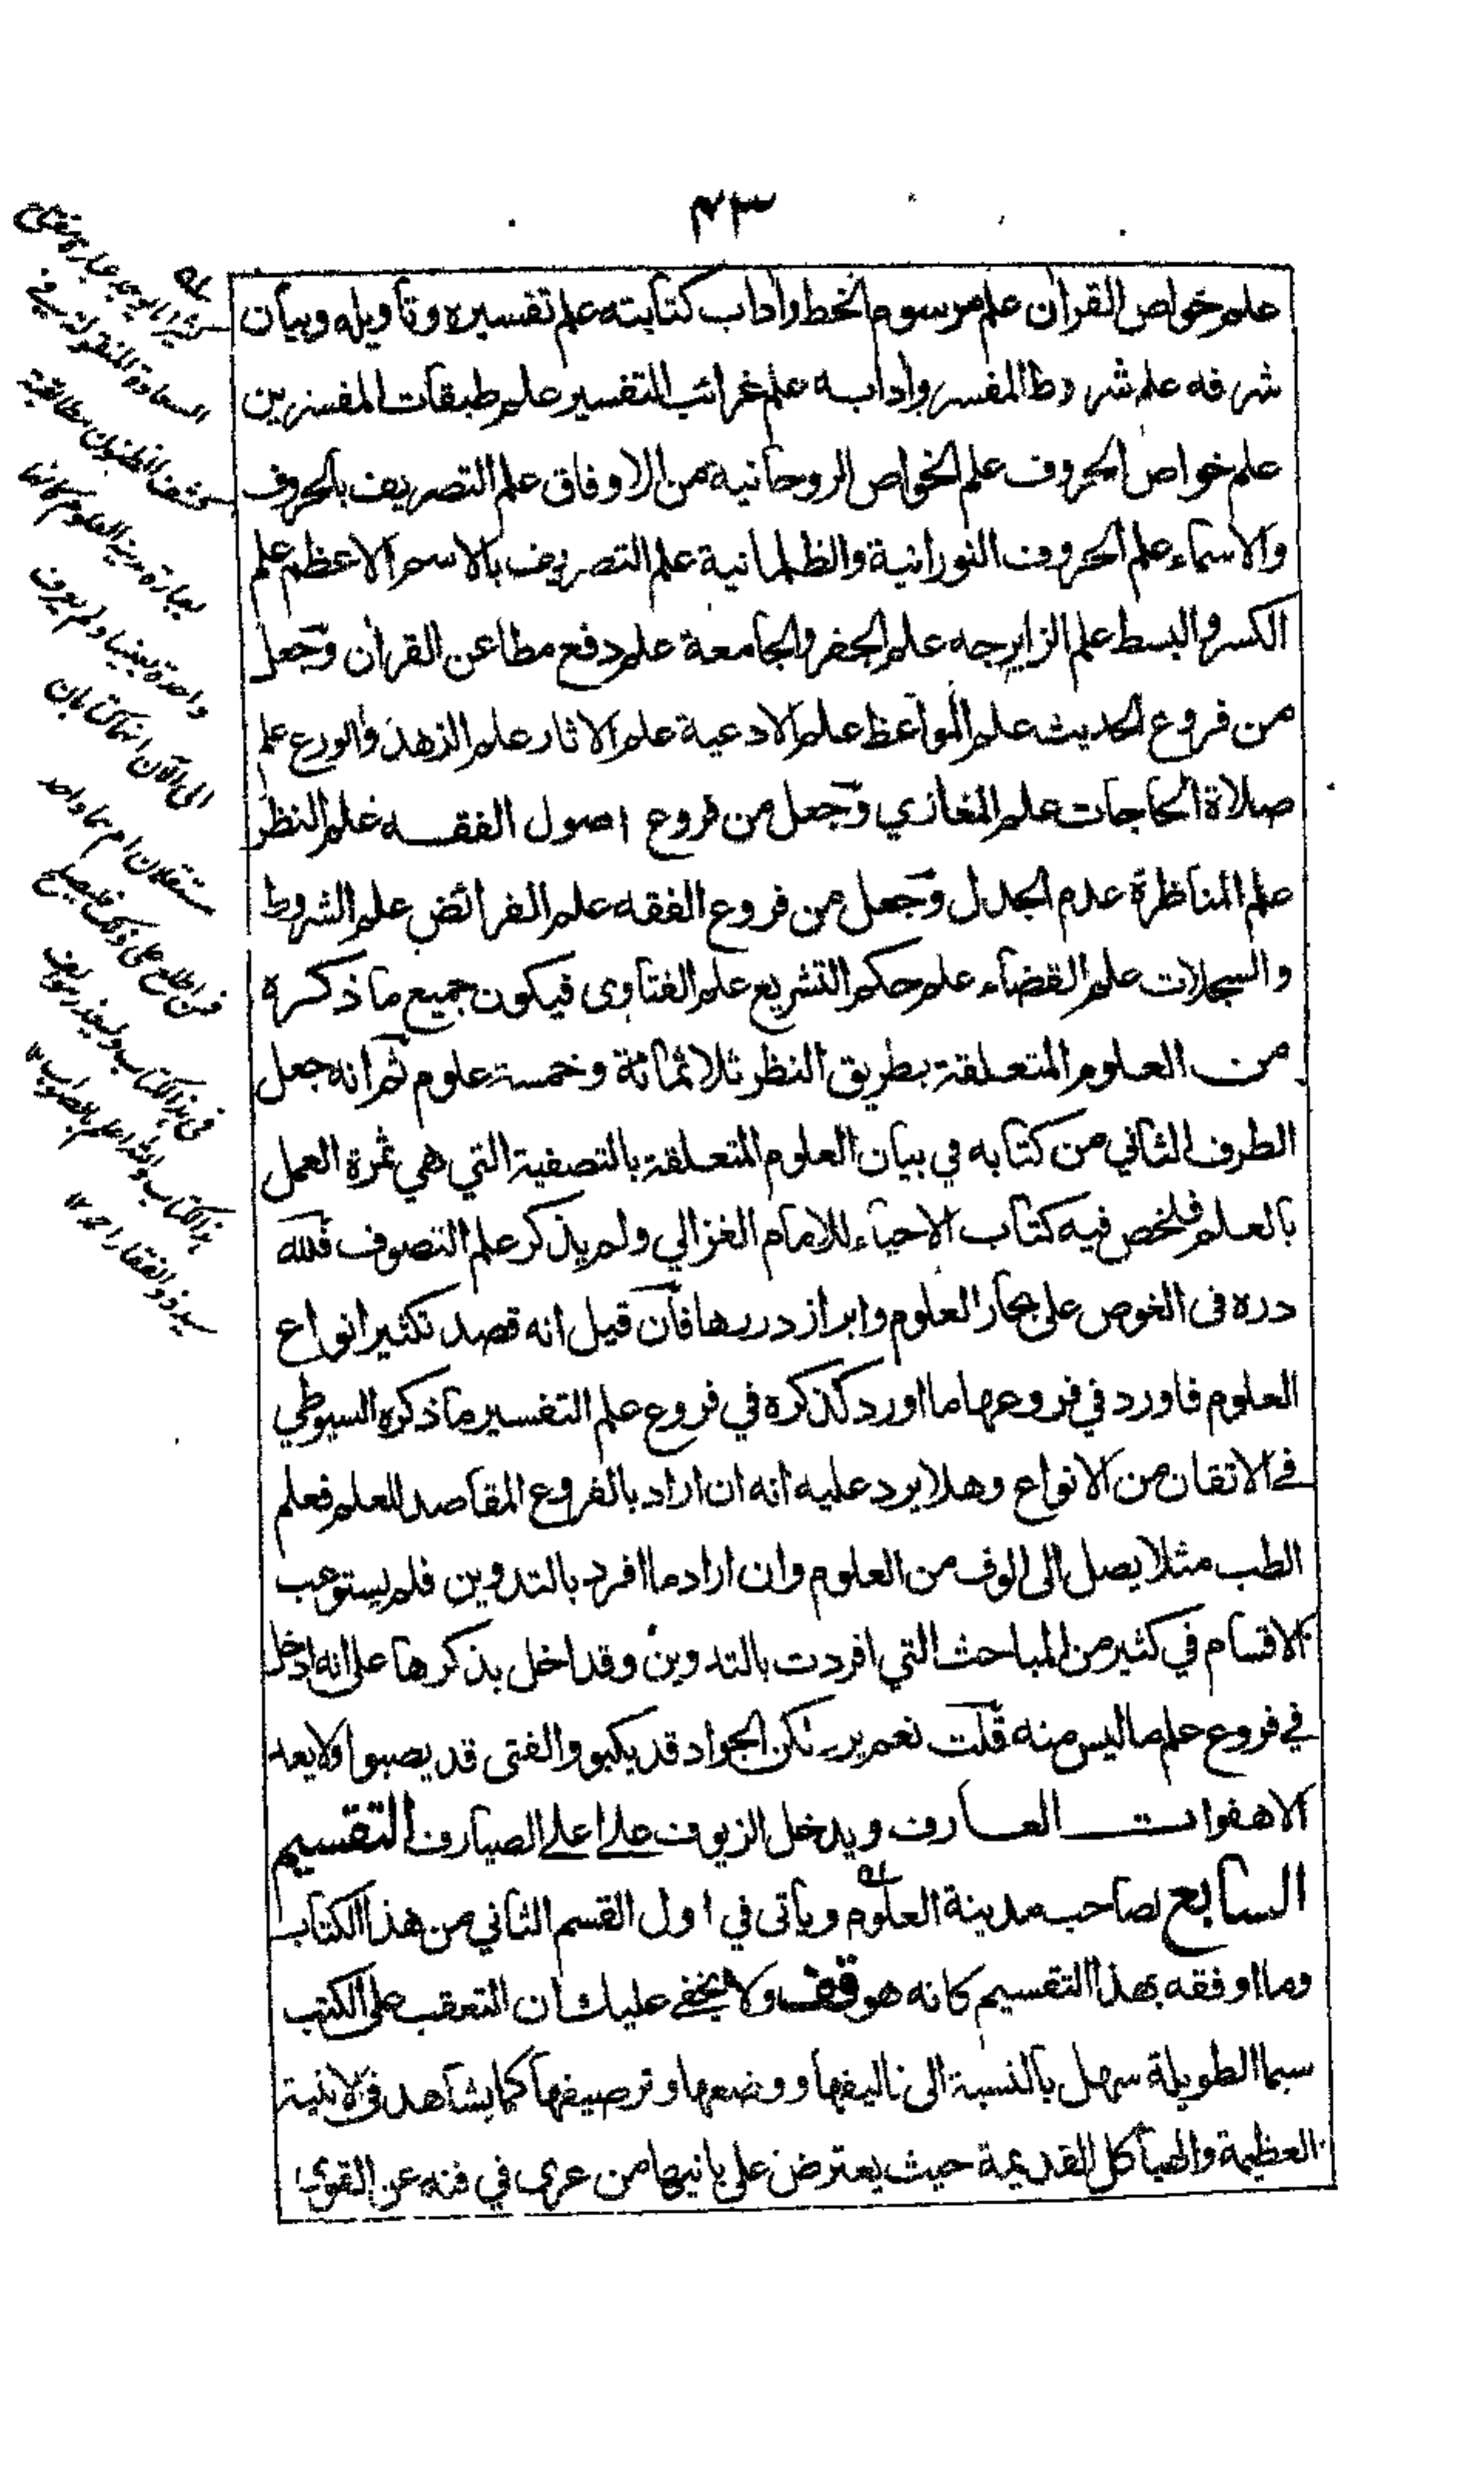 ٢٣
علم خواص القرآن علم مرسوم الخط واداب كتابته علم تفسيره وتأويله وبيان
شرفه علم شروط المفسر وادابه علم غرائب التفسير علم طبقات المفسرين
علم خواص الحروف علم الخواص الروحانية من الاوفاق علم التصريف بالحروف
والاسماء علم الحروف النورانية والظلمانية علم التصريف بالاسم الاعظم علم
الكسر والبسط علم الزايرجه علم الجفر والجامعة علم دفع مطاعن القرآن وجعل
من فروع الحديث علم المواعظ علم الادعية علم الاثار علم الزهد والورع علم
صلاة الحاجات علم المغازي وجعل من فروع اصول الفقه علم النظر
علم المناظرة علم الجدل وجعل من فروع الفقه علم الفرائض علم الشروط
والسجلات علم القضاء علم حكم التشريع علم الفتاوى فيكون جميع ما ذكره
من العلوم المتعلقة بطريق النظر ثلاثمائة وخمسة علوم ثم انه جعل
الطرف الثاني من كتابه في بيان العلوم المتعلقة بالتصفية التي هي ثمرة العمل
بالعلم فلخص فيه كتاب الاحياء للامام الغزالي ولم يذكر علم التصوف فلله
دره في الغوص على بحار العلوم وابراز دررها فان قيل انه قصد تكثير انواع
العلوم فاورد في فروعها ما اورد كذكره في فروع علم التفسير ما ذكره السيوطي
في الاتقان من الانواع وهلا يرد عليه انه ان اراد بالفروع المقاصد للعلم فعلم
الطب مثلا يصل الى الوف من العلوم وان اراد ما افرد بالتدوين فلم يستوعب
الاقسام في كثير من المباحث التي افردت بالتدوين وقد اخل بذكرها على انه ادخل
في فروع علم ما ليس منه قلت نعم يرد لكن الجواد قد يكبو والفتى قد يصبوا ولا يعد
الا هفوات العارف ويدخل الزيوف على اعلى الصيارف التقسيم
السابع لصاحب مدينة العلوم ويأتى في اول القسم الثاني من هذا الكتاب
وما اوفقه بهذا التقسيم كانه هو قف ولا يخفى عليك ان التعقب على الكتب
سيما الطويلة سهل بالنسبة الى تاليفها ووضعها وترصيفها كما يشاهد في الابنية
العظيمة والهياكل القديمة حيث يعترض على بانيها من عرى في فنه عن القوى
السعادة المنقولة في
كشف الظنون مطابقة
لعبارة مدينة العلوم كانها
واحدة بعينها ولم يعرف
الى الآن انهما كتابان
مستقلان ام هما واحد
فمن اطلع على ذلك فليصلح
في هذا الكتاب وليعذر مؤلف
هذا الكتاب والله اعلم بالصواب
سيد ذو الفقار احمد